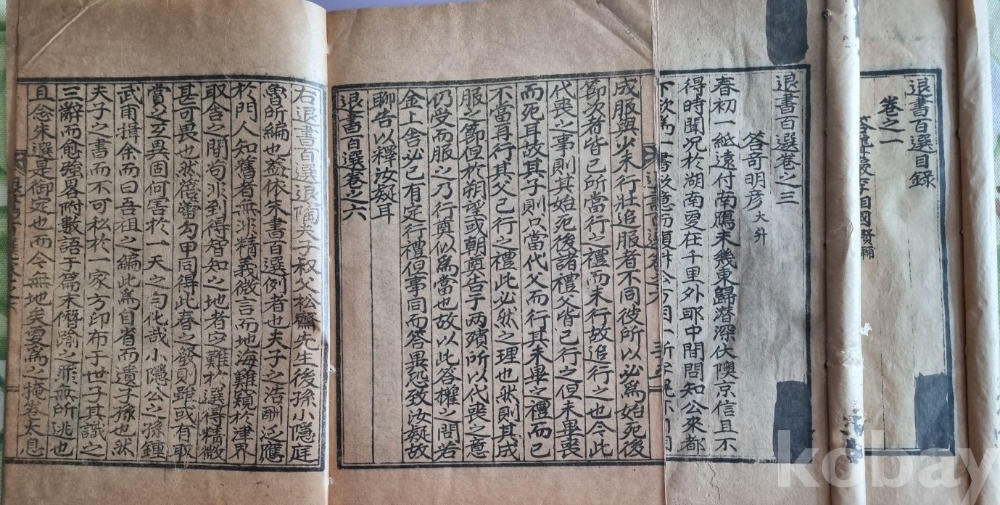 退書百選目錄
卷之一
退書百選卷之三
答奇明彦 大升
春初一紙遠付南鴈未幾東歸潛深伏隩京信且不
得時聞況於湖南夐在千里外耶中間聞知公來都
成服與少未行壯追服者不同彼所以必爲始死後
節次者皆已所當行之禮而未行故追行之也今此
代喪之事則其始死後諸禮父皆已行之但未畢喪
而死耳故其子則只當代父而行其未畢之禮而已
不當再行其父已行之禮此必然之理也然則其成
服之節但於朔望或朝奠告子兩殯所以代喪之意
仍受而服之乃行奠似爲當也故以此答權之問若
金上舍必已有定行禮但事同而答異恐致汝疑故
聊告以釋汝疑耳
退書百選卷之六
右退書百選退陶夫子叔父松齋先生後孫小隱庭
魯所編也盖依朱書百選例者也夫子之浩酬泛應
於門人知舊者無非精義微言而地海難窺於津界
取舍之間苟非到得智知之地者宁難於選得精微
甚可畏也然薝蕾勾甲同得此春之發則雖或有取
賞之互異固何害於一天之勻化哉小隱公之孫鍾
武甫揖余而曰吾祖之編此爲自省而遺子孫也然
夫子之書而不可私於一家方印布于世子其識之
三辭而愈強畧附數語于篇末僭瀹之罪無所逃也
且念朱選是御定也而今無地矣耍爲之掩卷太息